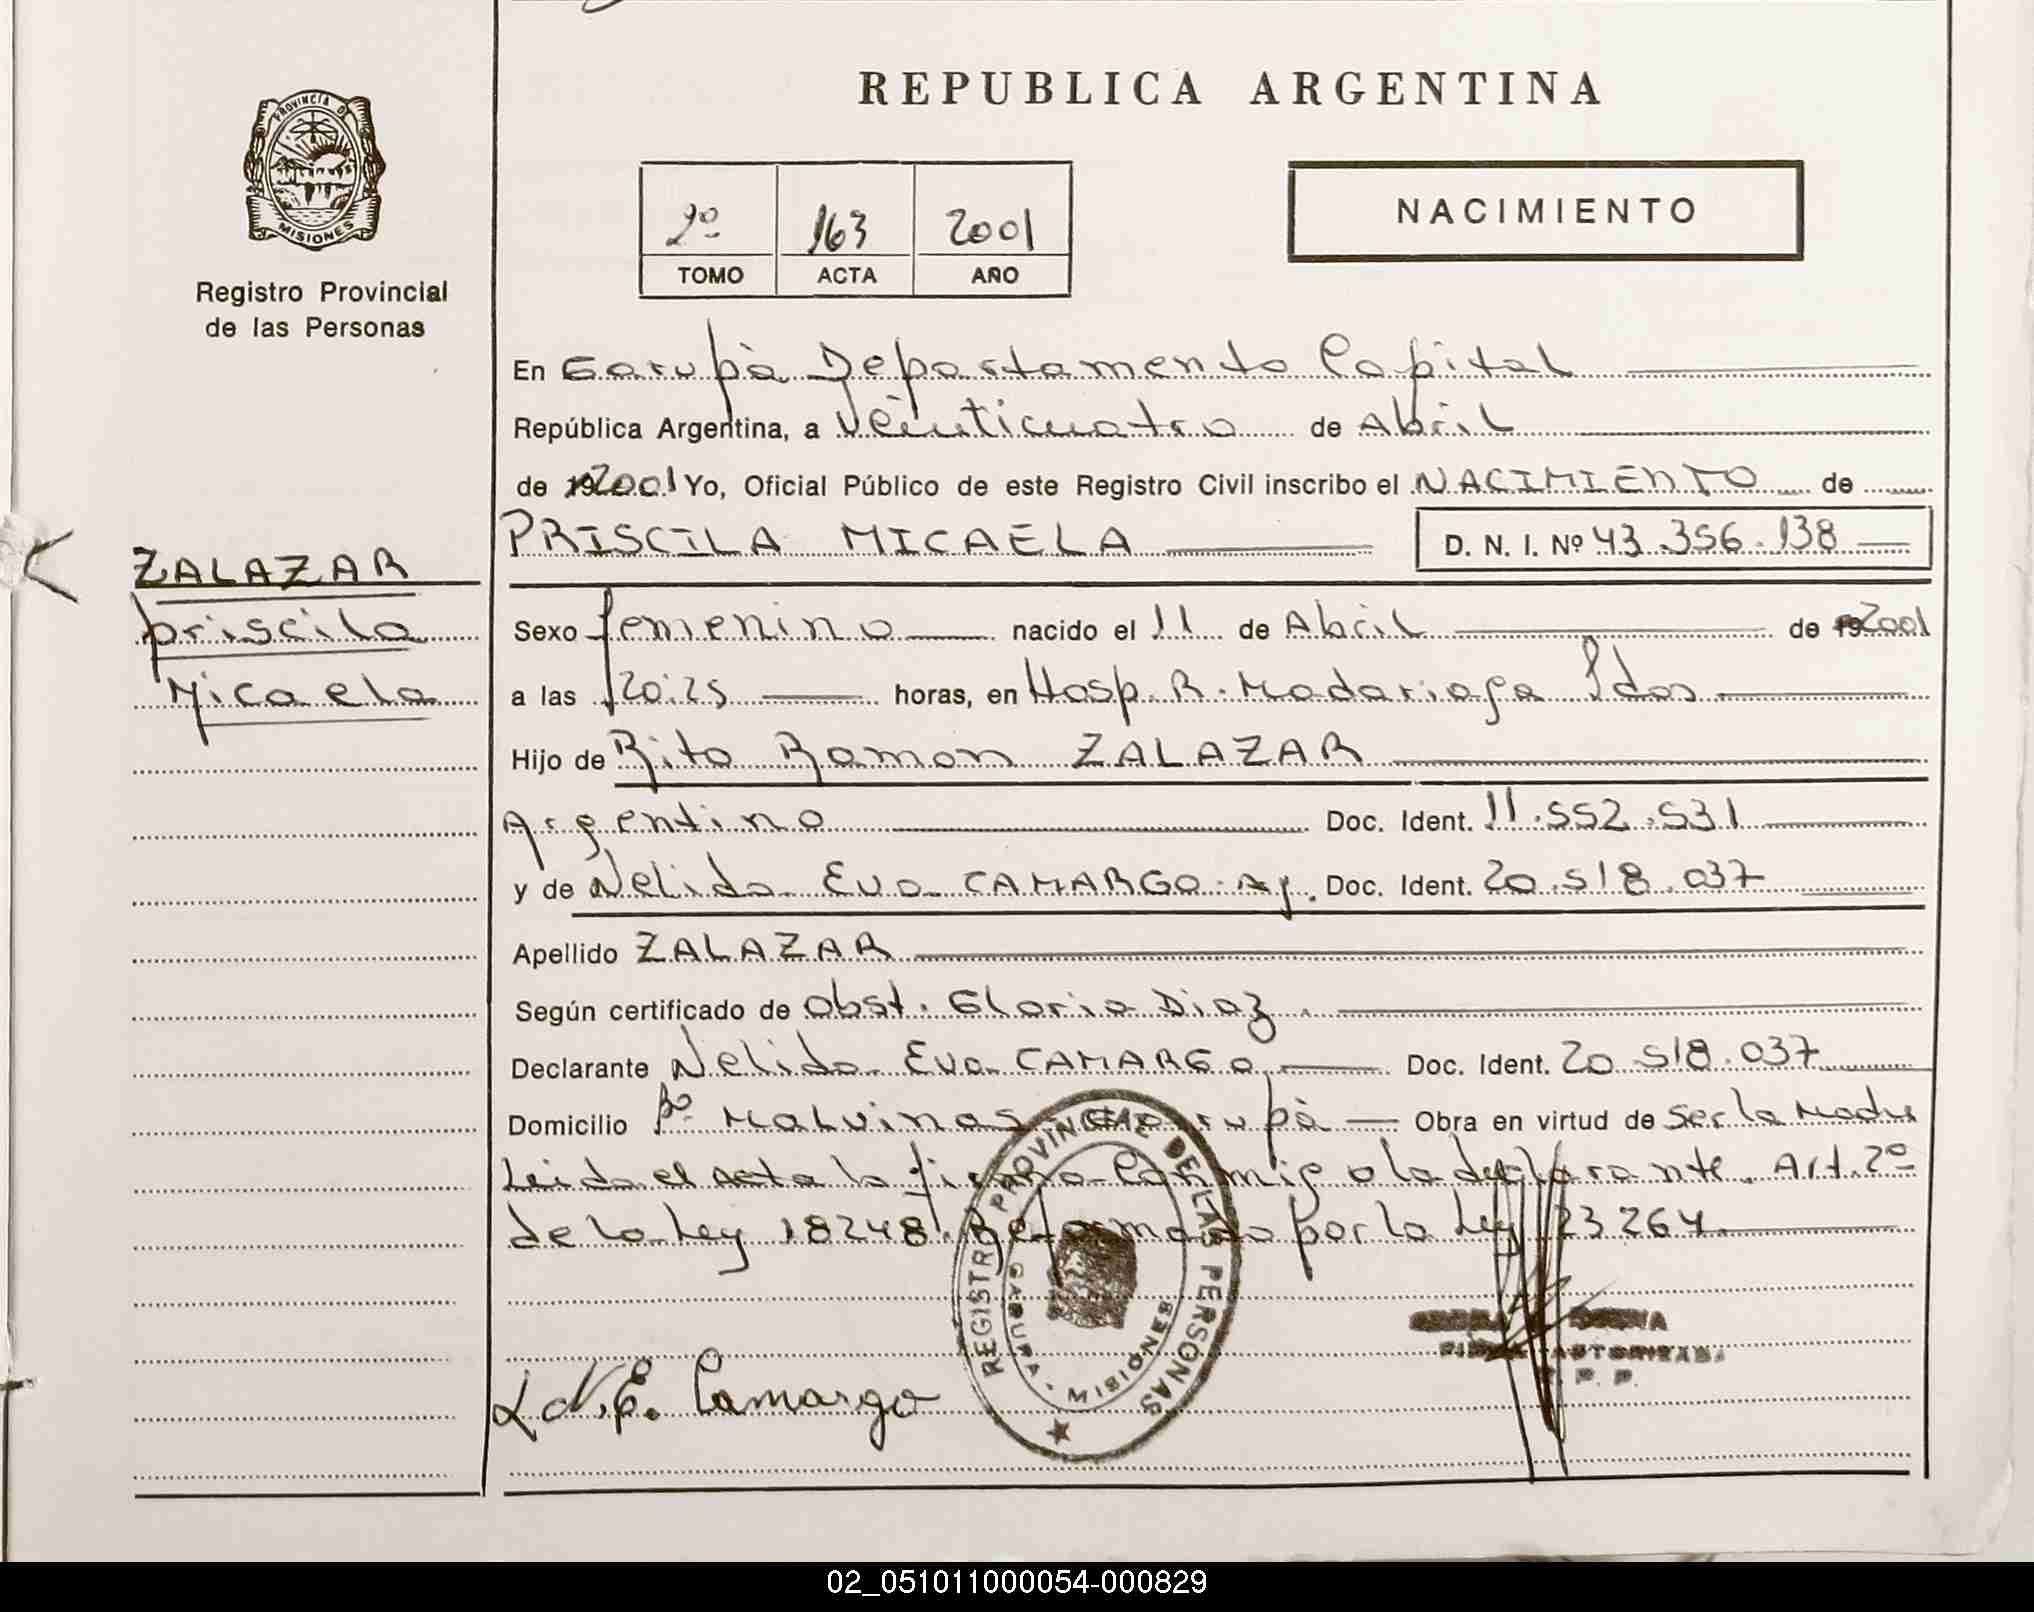 PROVINCIA DE
MISIONES
Registro Provincial
de las Personas
ZALAZAR
Priscila
Micaela
REPUBLICA ARGENTINA
2º 163 2001
TOMO ACTA AÑO
NACIMIENTO
En Garupà Departamento Capital
República Argentina, a Veinticuatro de Abril
de 2001 Yo, Oficial Público de este Registro Civil inscribo el NACIMIENTO de
PRISCILA MICAELA D. N. I. Nº 43.356.138
Sexo femenino nacido el 11 de Abril de 2001
a las 20:25 horas, en Hosp. R. Madariaga Pdas
Hijo de Rito Ramon ZALAZAR
Argentino Doc. Ident. 11.552.531
y de Nelida Eva CAMARGO. Arg. Doc. Ident. 20.518.037
Apellido ZALAZAR
Según certificado de Obst. Gloria Diaz.
Declarante Nelida Eva CAMARGO Doc. Ident. 20.518.037
Domicilio Bº Malvinas Garupà Obra en virtud de Ser la Madre
Leida el acta la firma Conmigo la declarante. Art. 2º
de la Ley 18248. Reformado por la Ley 23.264
REGISTRO PROVINCIAL DE LAS PERSONAS
GARUPA - MISIONES
N. E. Camargo
R. P. P.
02_051011000054-000829